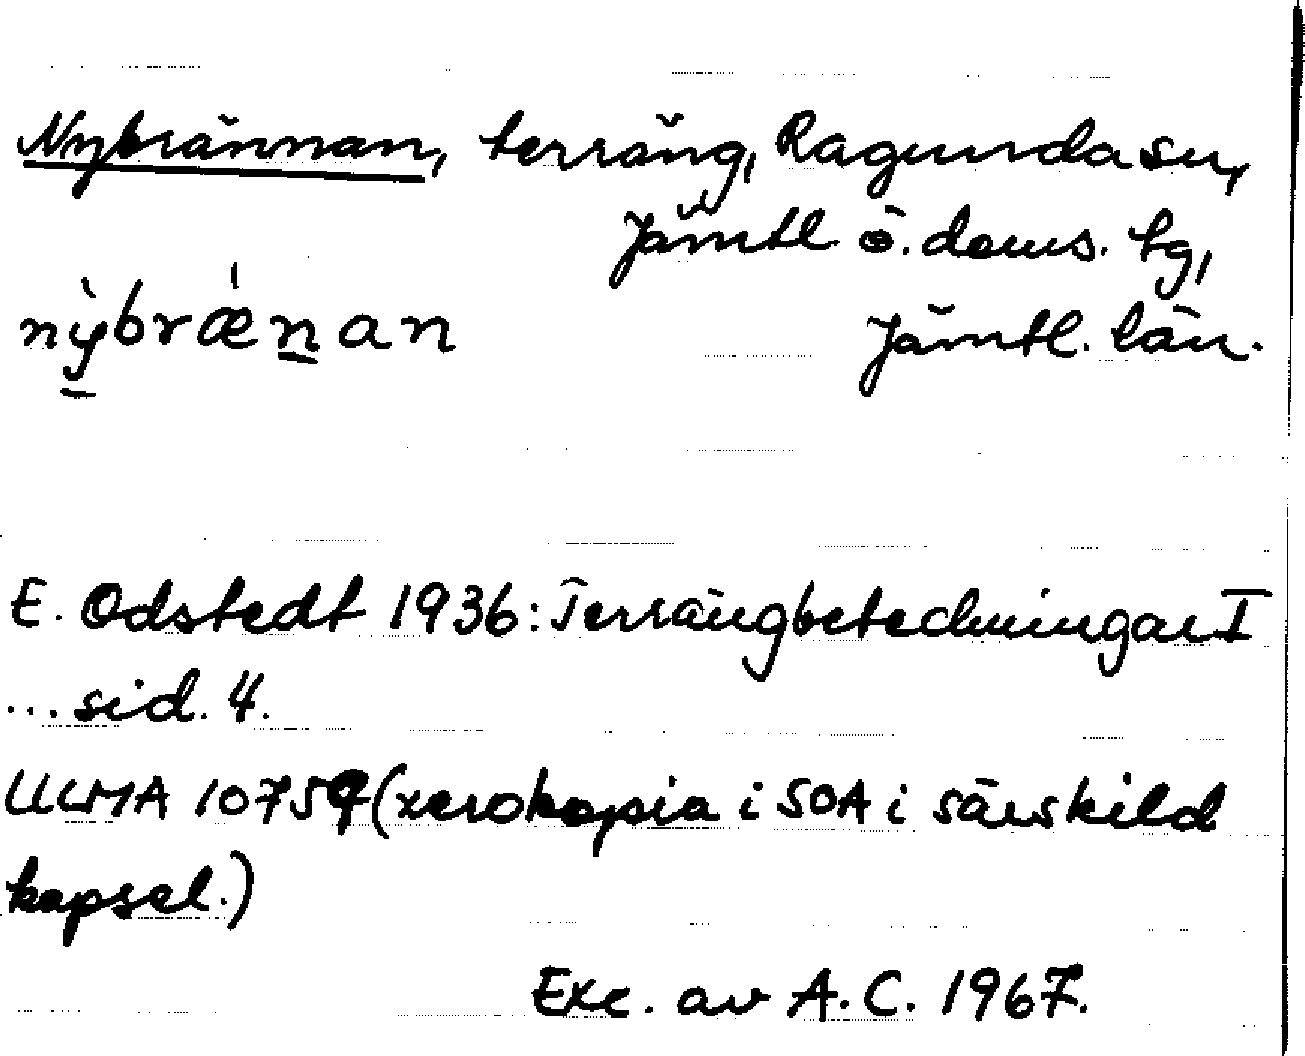 Nybrännan, terräng, Ragunda sn,
Jämtl. ö. doms. tg,
nỳbrǽnan
Jämtl. län.
E. Odstedt 1936: Terrängbeteckningar I
... sid. 4.
ULMA 10759 (xerokopia i SOA i särskild
kapsel.)
Exc. av A. C. 1967.